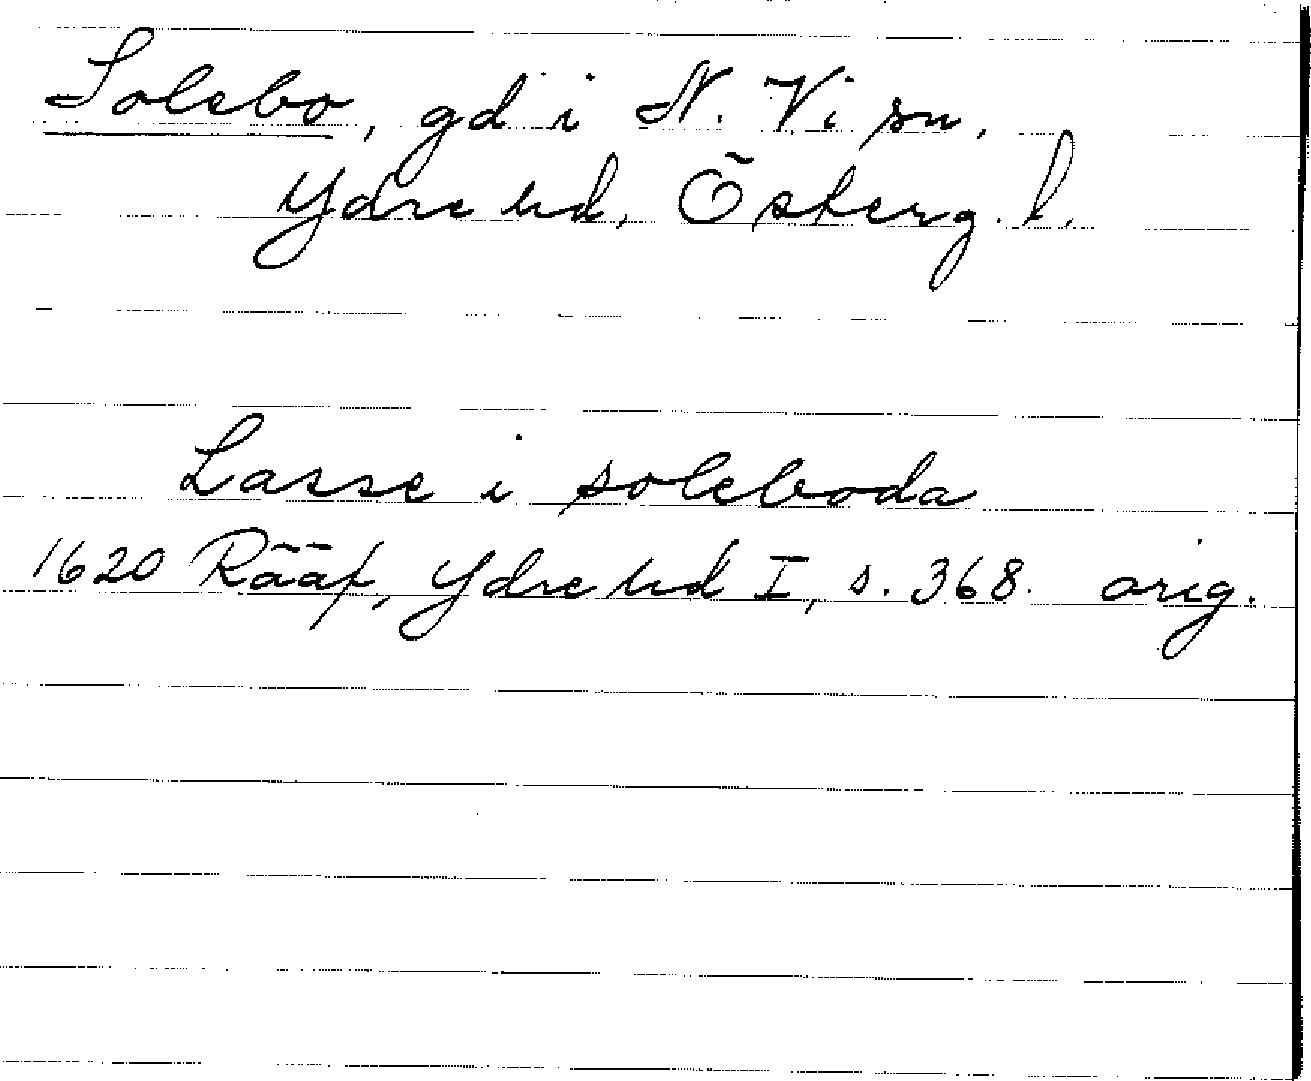 Solebo, gd i N. Vi sn,
Ydre hd, Österg. l.
Lasse i soleboda
1620 Rääf, Ydre hd I, s. 368. orig.